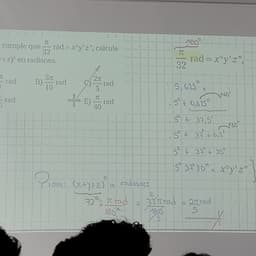 cumple que π/32 rad = x°y'z", calcule
en radianes.
rad B) 3π/10 rad C) 2π/5 rad
rad E) π/40 rad
180°
π/32 rad = x°y'z",
5,625°
5° + 0,625°
5° + 37,5'
5° + 37' + 0,5'
5° + 37' + 30"
5° 37' 30" = x°y'z"
Piden: (x+y+z)° a radianes
72° . π rad / 180° = 72π rad / 180 = 2π rad / 5